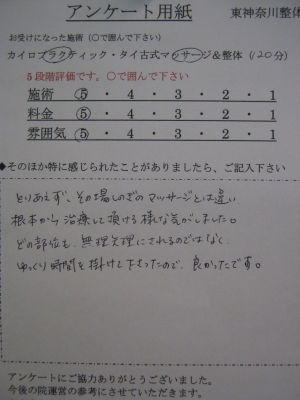 アンケート用紙 東神奈川整体
お受けになった施術（○で囲んで下さい）
カイロプラクティック・タイ古式マッサージ&整体（120分）
5段階評価です。○で囲んで下さい
施術 5・4・3・2・1
料金 5・4・3・2・1
雰囲気 5・4・3・2・1
◆そのほか特に感じられたことがありましたら、ご記入下さい
とりあえず、その場しのぎのマッサージとは違い
根本から治療して頂ける様な気がしました。
どの部位も、無理矢理にされるのではなく、
ゆっくり時間を掛けて下さったので、良かったです。
アンケートにご協力ありがとうございました。
今後の院運営の参考にさせていただきます。